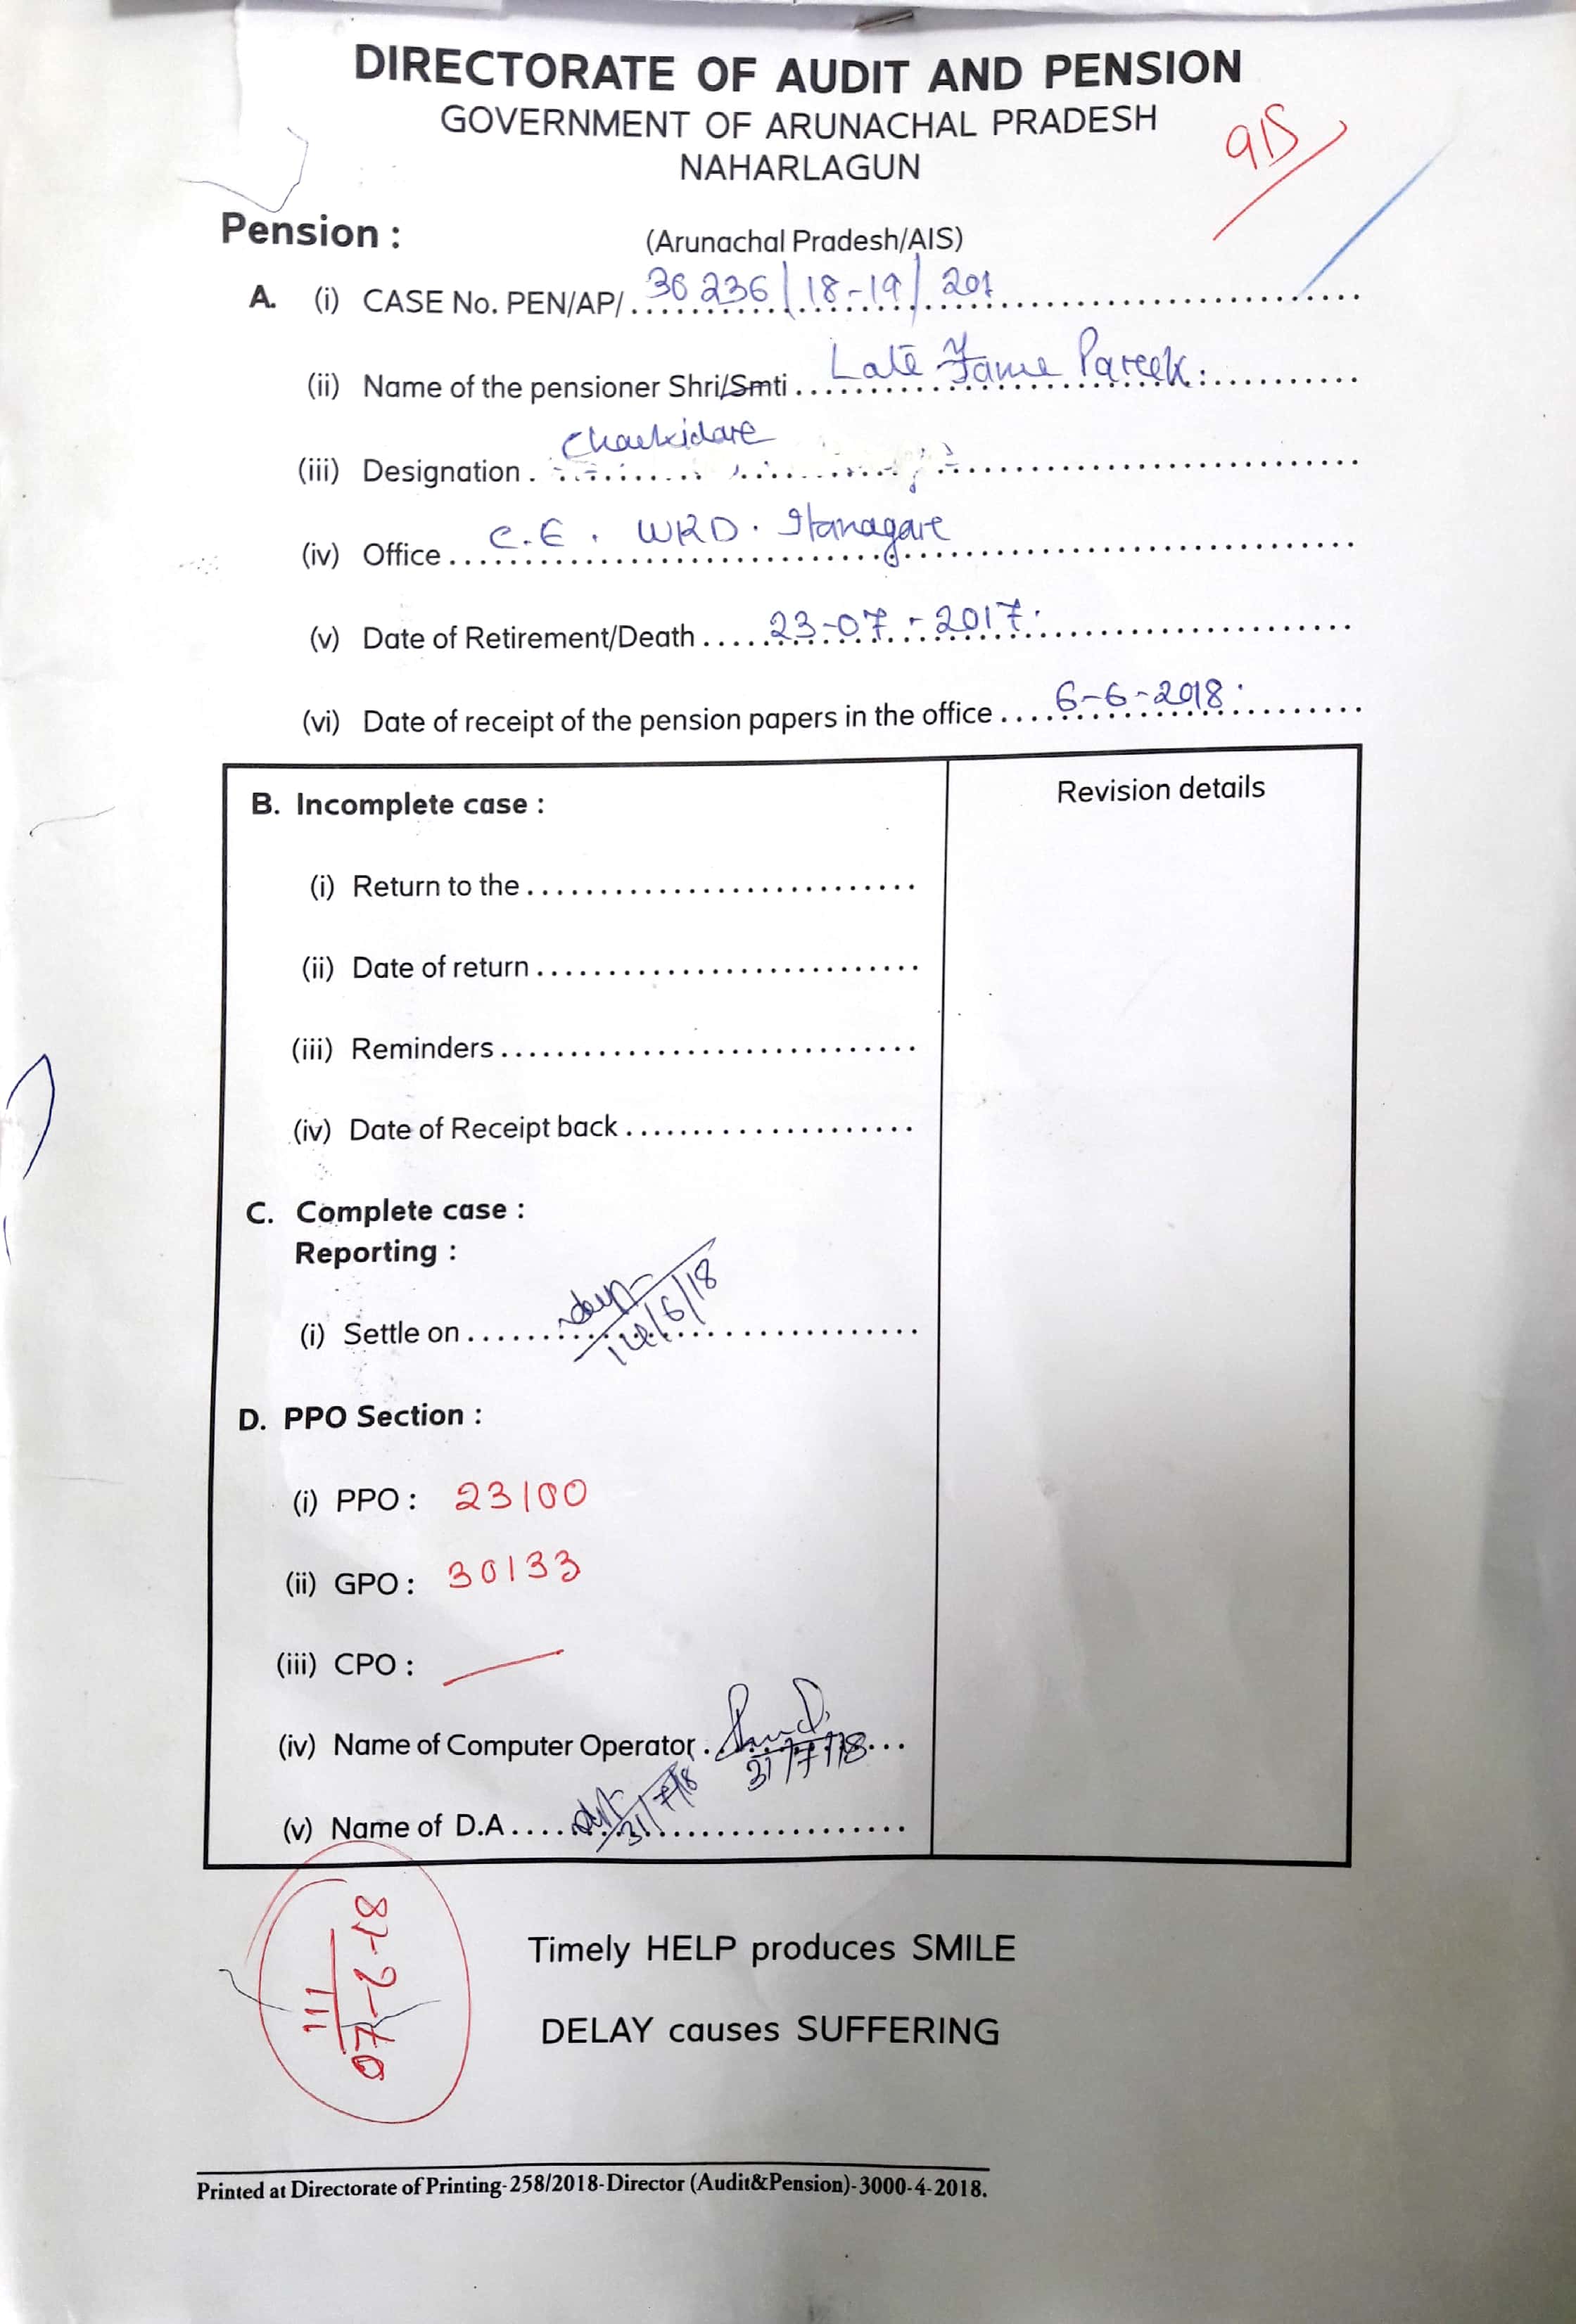 DIRECTORATE OF AUDIT AND PENSION
GOVERNMENT OF ARUNACHAL PRADESH
NAHARLAGUN
915
Pension :
(Arunachal Pradesh/AIS)
A. (i) CASE No. PEN/AP/ 36236/18-19/201
(ii) Name of the pensioner Shri/Smti Late Fame Pareek.
(iii) Designation
(iv) Office C.E. WRD. Itanagare
(v) Date of Retirement/Death 23-07-2017.
(vi) Date of receipt of the pension papers in the office 6-6-2018.
B. Incomplete case :
Revision details
(i) Return to the
(ii) Date of return
(iii) Reminders
(iv) Date of Receipt back
C. Complete case :
Reporting :
(i) Settle on 14/6/18
D. PPO Section :
(i) PPO : 23100
(ii) GPO : 30133
(iii) CPO :
(iv) Name of Computer Operator 31/7/18
(v) Name of D.A 31/7/18
Timely HELP produces SMILE
DELAY causes SUFFERING
Printed at Directorate of Printing-258/2018-Director (Audit&Pension)-3000-4-2018.